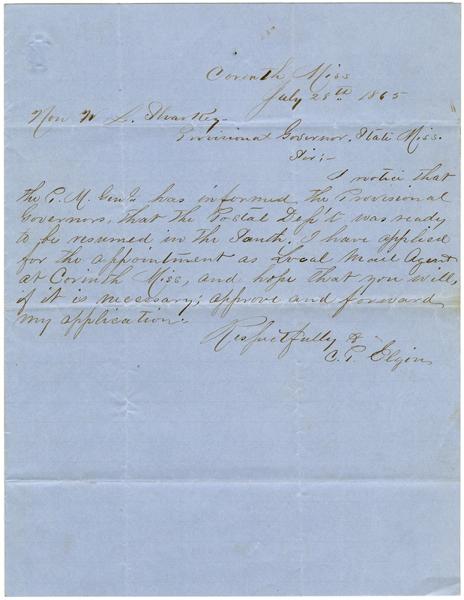 Corinth Miss
July 28th 1865
Hon W L. Sharkey
Provisional Governor, State Miss.
Sir;-
I notice that
the P. M. Genl. has informed the Provisional
Governors, that the Postal Dep't was ready
to be resumed in the South. I have applied
for the appointment as Local Mail Agent
at Corinth Miss, and hope that you will,
if it is necessary; approve and forward
my application.
Respectfully &c
C. P. Elgin